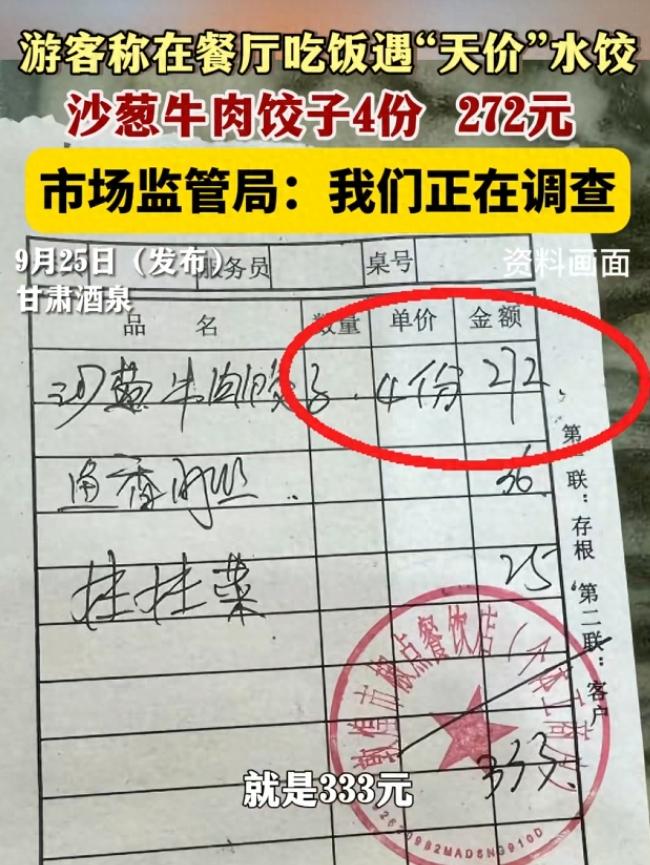 游客称在餐厅吃饭遇“天价”水饺
沙葱牛肉饺子4份 272元
市场监管局：我们正在调查
9月25日（发布）
甘肃酒泉
资料画面
服务员 桌号
品名 数量 单价 金额
沙葱牛肉饺子. 4份 272.
鱼香肉丝. 36
拄拄菜 25
333
第一联：存根 第二联：客户
就是333元